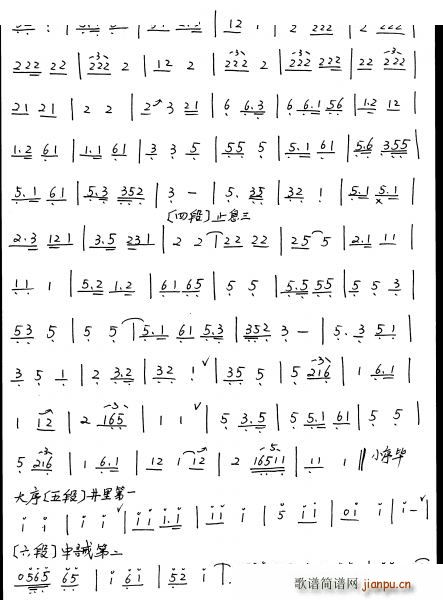 12 | 2 222 | 2 222
222 22 | 222 2 | 12 2 | 222 2 | 222 222 | 22 222
21 21 | 2 2 | 2 3 21 | 6 6.3 | 6 6.1 56 | 1.2 12
1.2 61 | 1.1 61 | 3 3 5 | 55 5 | 5.1 61 | 5.6 355
5.1 61 | 5.3 352 | 3 — | 5. 35 | 32 1 | 5.1 5.1
[四段]止息三
2.3 121 | 3.5 231 | 2 2 | 22 22 | 25 5 | 2.1 11
11 1 | 5.2 1.2 | 61 65 | 5 5 | 5.5 55 | 5 5 3
53 5 | 5 5 | 5.1 61 5.3 | 352 3 — | 5. 3 51
3 5 1 | 2 3.2 | 32 1 | 35 5 | 5 216 | 1 6.1
1 12 | 2 165 | 1 1 | 5 3.5 | 5 5.1 61 | 5 5
5 216 | 1 6.1 | 12 1 12 | 2 16511 | 11 1 ‖ 小序毕
大序[五段]井里第一
i i | i i | i i i.i | i i i | 5 i i | 0 i i | i —
[六段]申誠第二
0565 65 | i 6i | 52 i
歌谱简谱网 jianpu.cn